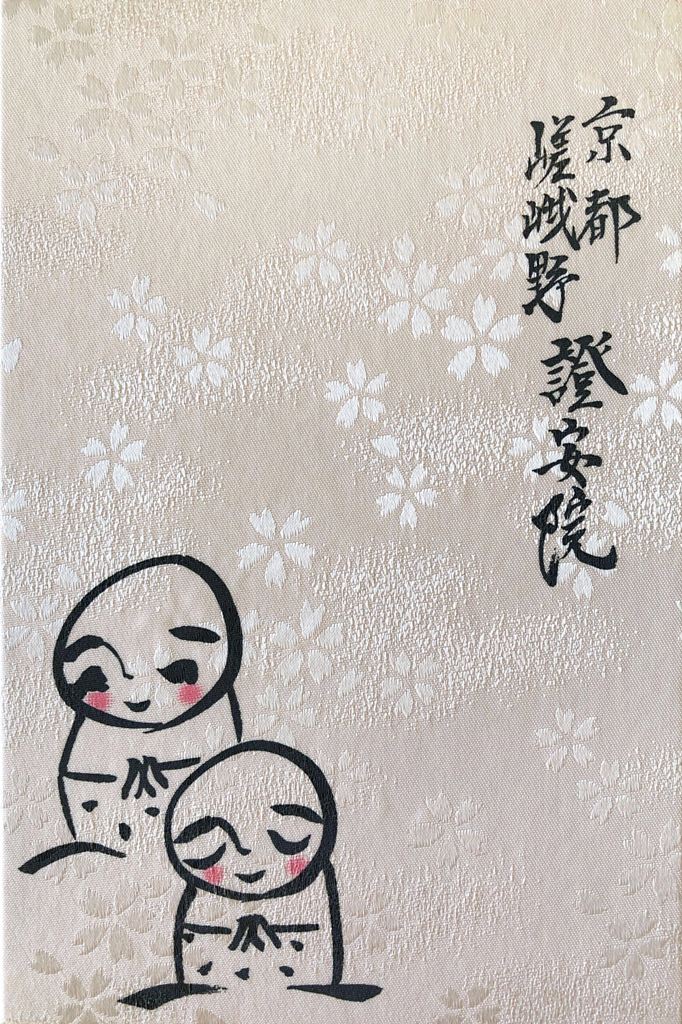 京都
嵯峨野
證安院